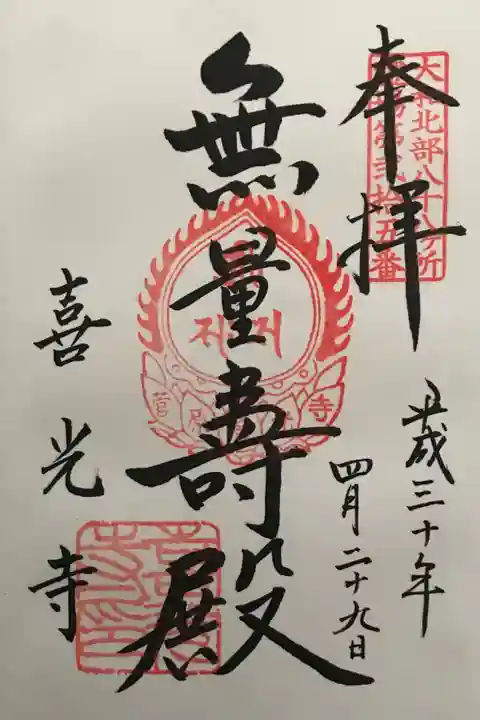 奉拝
大和北部八十八ヶ所
霊場第弐拾五番
平成三十年
四月二十九日
無量壽殿
喜光寺